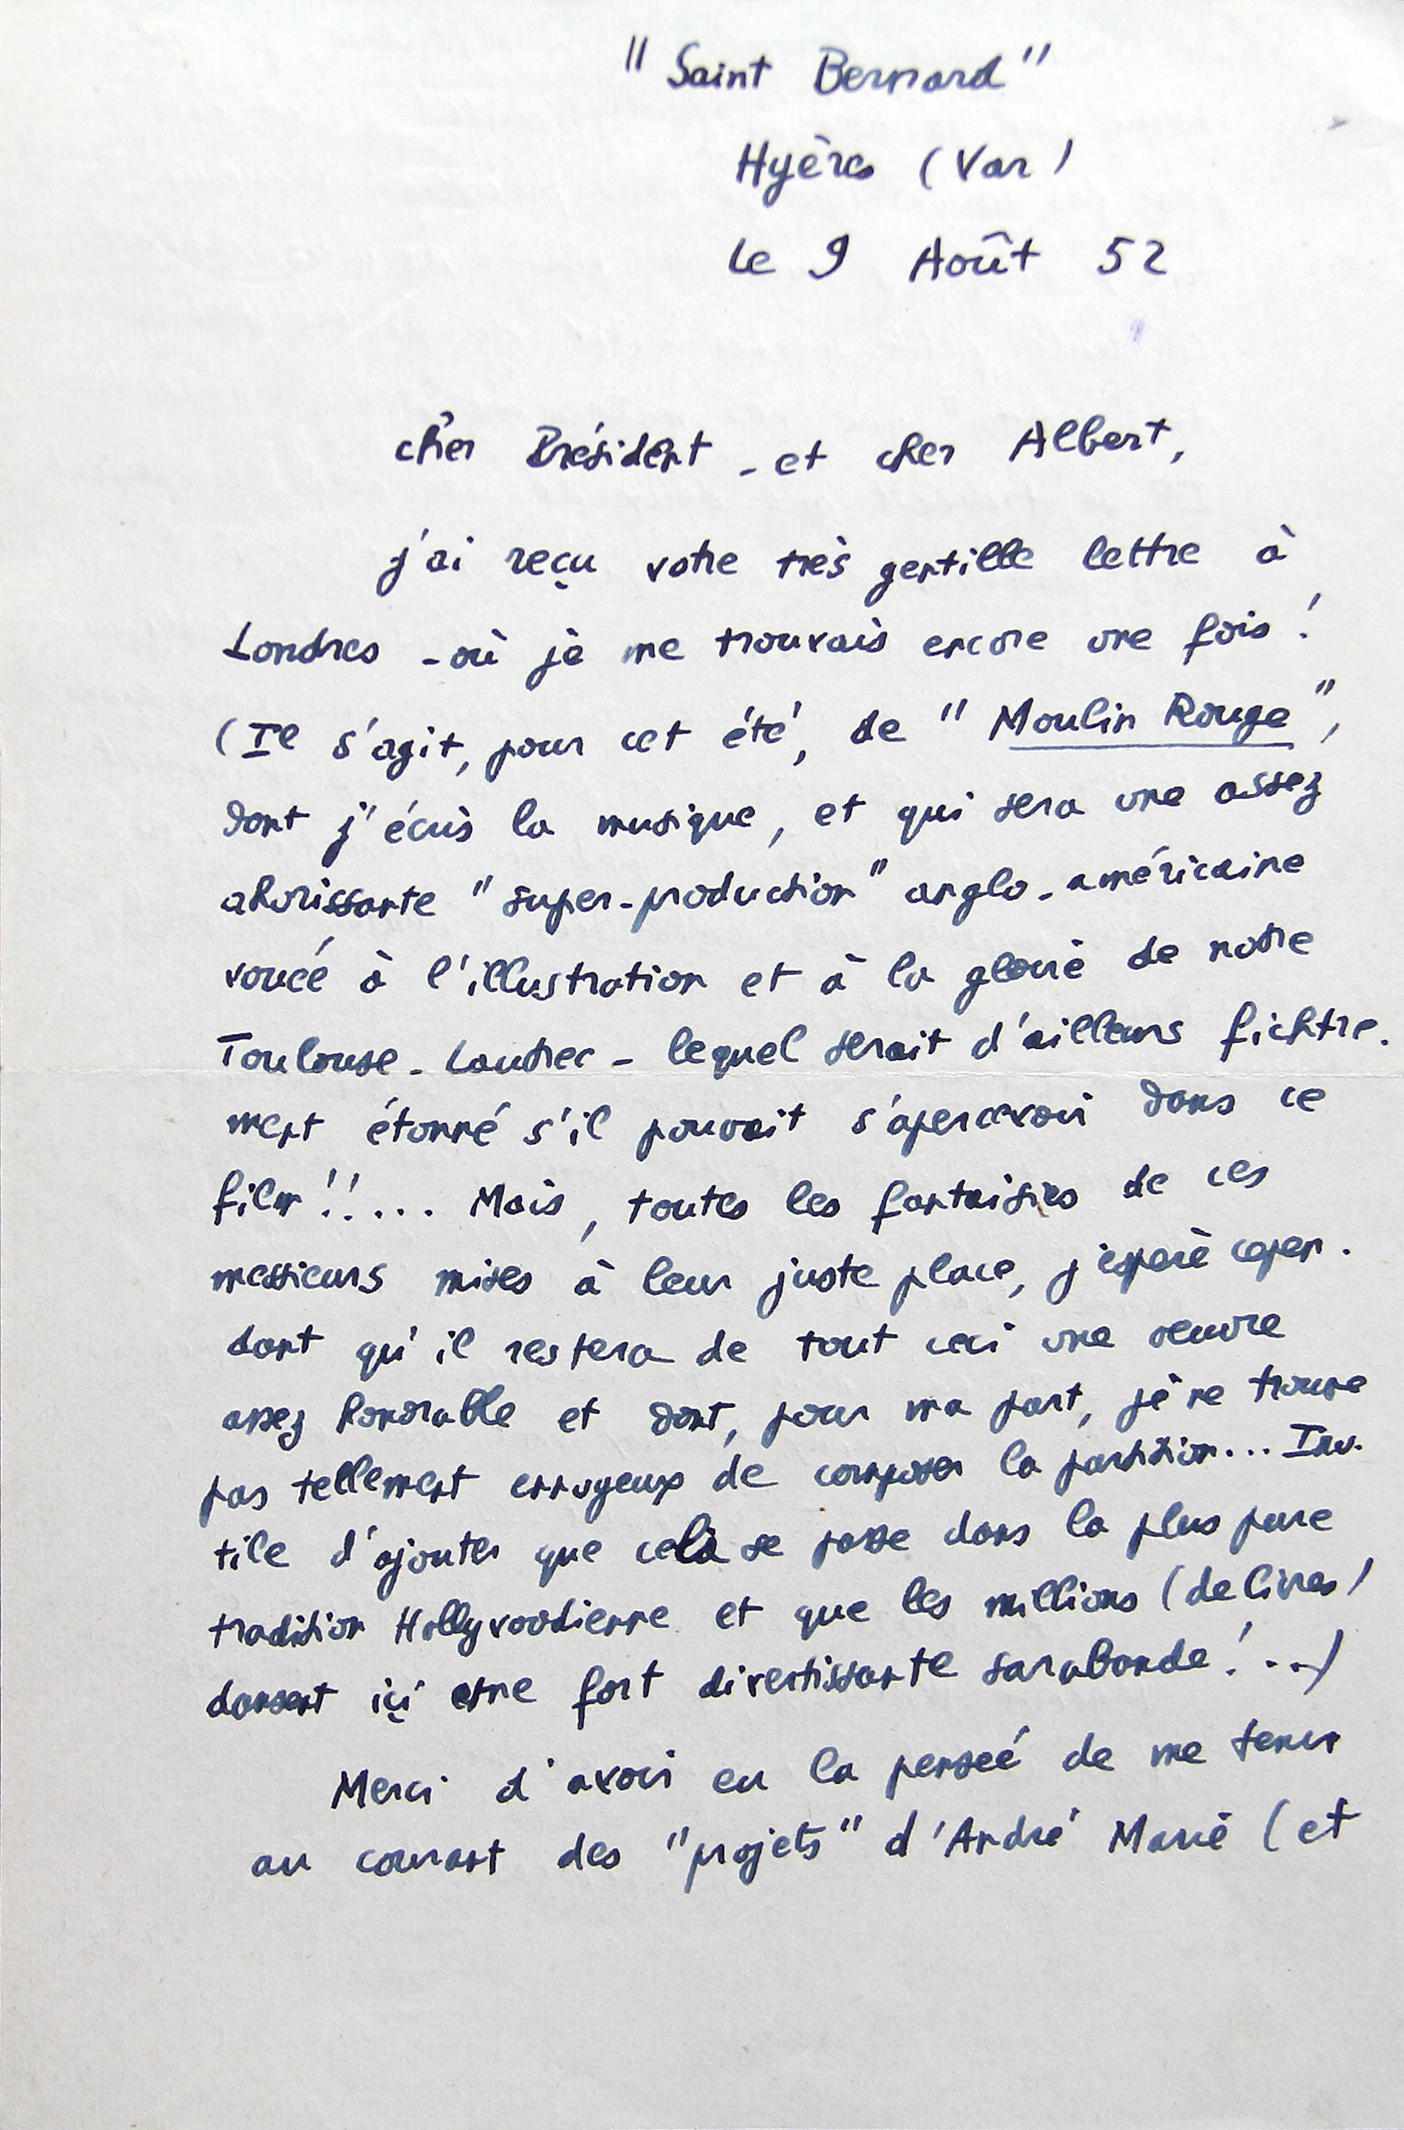 "Saint Bernard"
Hyères (Var)
le 9 Août 52
cher Président - et cher Albert,
j'ai reçu votre très gentille lettre à
Londres - où je me trouvais encore une fois !
(Il s'agit, pour cet été, de "Moulin Rouge",
dont j'écris la musique, et qui sera une assez
ahurissante "super-production" anglo-américaine
vouée à l'illustration et à la gloire de notre
Toulouse-Lautrec - lequel serait d'ailleurs fichtre-
ment étonné s'il pouvait s'apercevoir dans ce
film !!.... Mais, toutes les fantaisies de ces
messieurs mises à leur juste place, j'espère cepen-
dant qu'il restera de tout ceci une oeuvre
assez honorable et dont, pour ma part, je ne trouve
pas tellement ennuyeux de composer la partition... Inu-
tile d'ajouter que celà se passe dans la plus pure
tradition Hollyvoodienne et que les millions (de livres)
dansent içi une fort divertissante sarabande !...)
Merci d'avoir eu la pensée de me tenir
au courant des "projets" d'André Marie (et